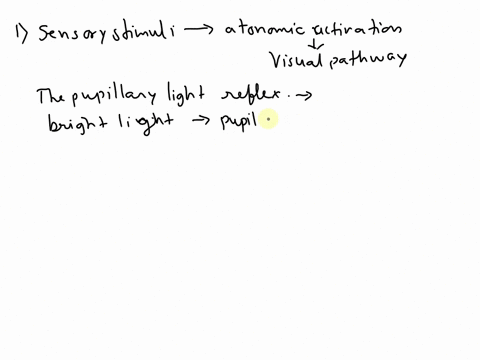 1) Sensory stimuli → atonomic activation
↓
Visual pathway
The pupillary light reflex. →
bright light → pupil